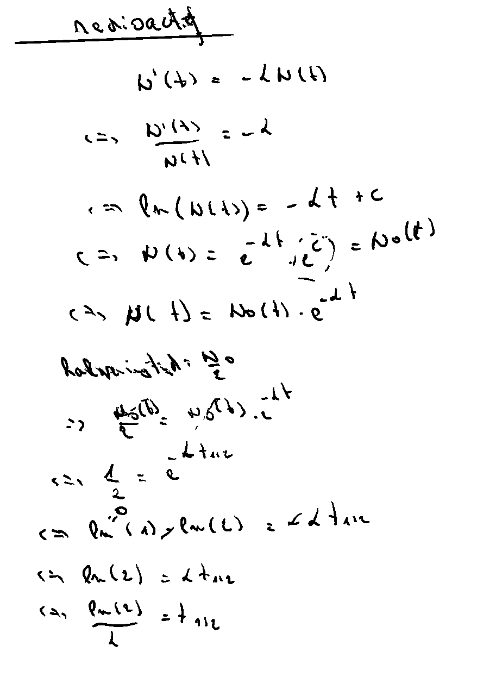 radioactif
N'(t) = -λN(t)
<=> N'(t)/N(t) = -λ
<=> ln(N(t)) = -λt + c
<=> N(t) = e^{-λt} · e^{c} = N₀(t)
<=> N(t) = N₀(t) · e^{-λt}
N₀/2
=> N₀(t)/2 = N₀(t) · e^{-λt}
<=> 1/2 = e^{-λt_{1/2}}
<=> ln(1) - ln(2) = -λt_{1/2}
<=> ln(2) = λt_{1/2}
<=> ln(2)/λ = t_{1/2}